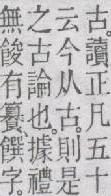 古。讀正凡五十
云今从古。則是
之古論也。據禮
無餕有籑饌字。